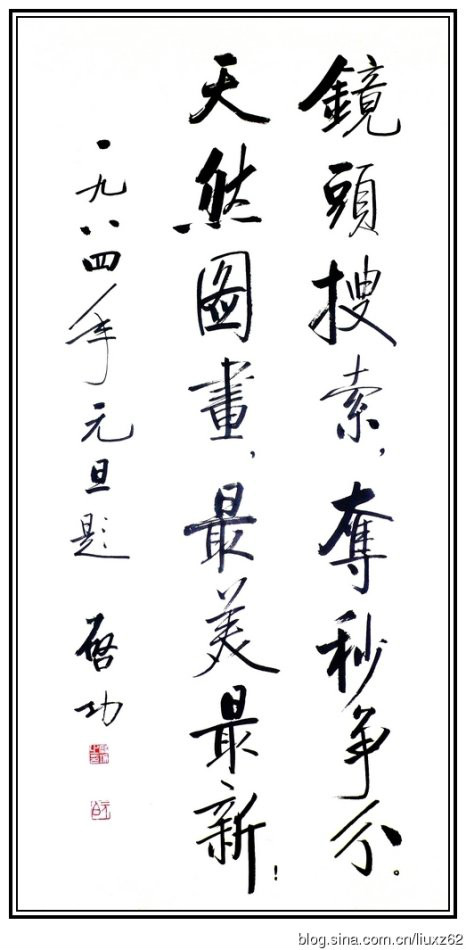 鏡頭搜索，奪秒争分。
天然圖畫，最美最新！
一九八四年元旦題 啓功
blog.sina.com.cn/liuxz62